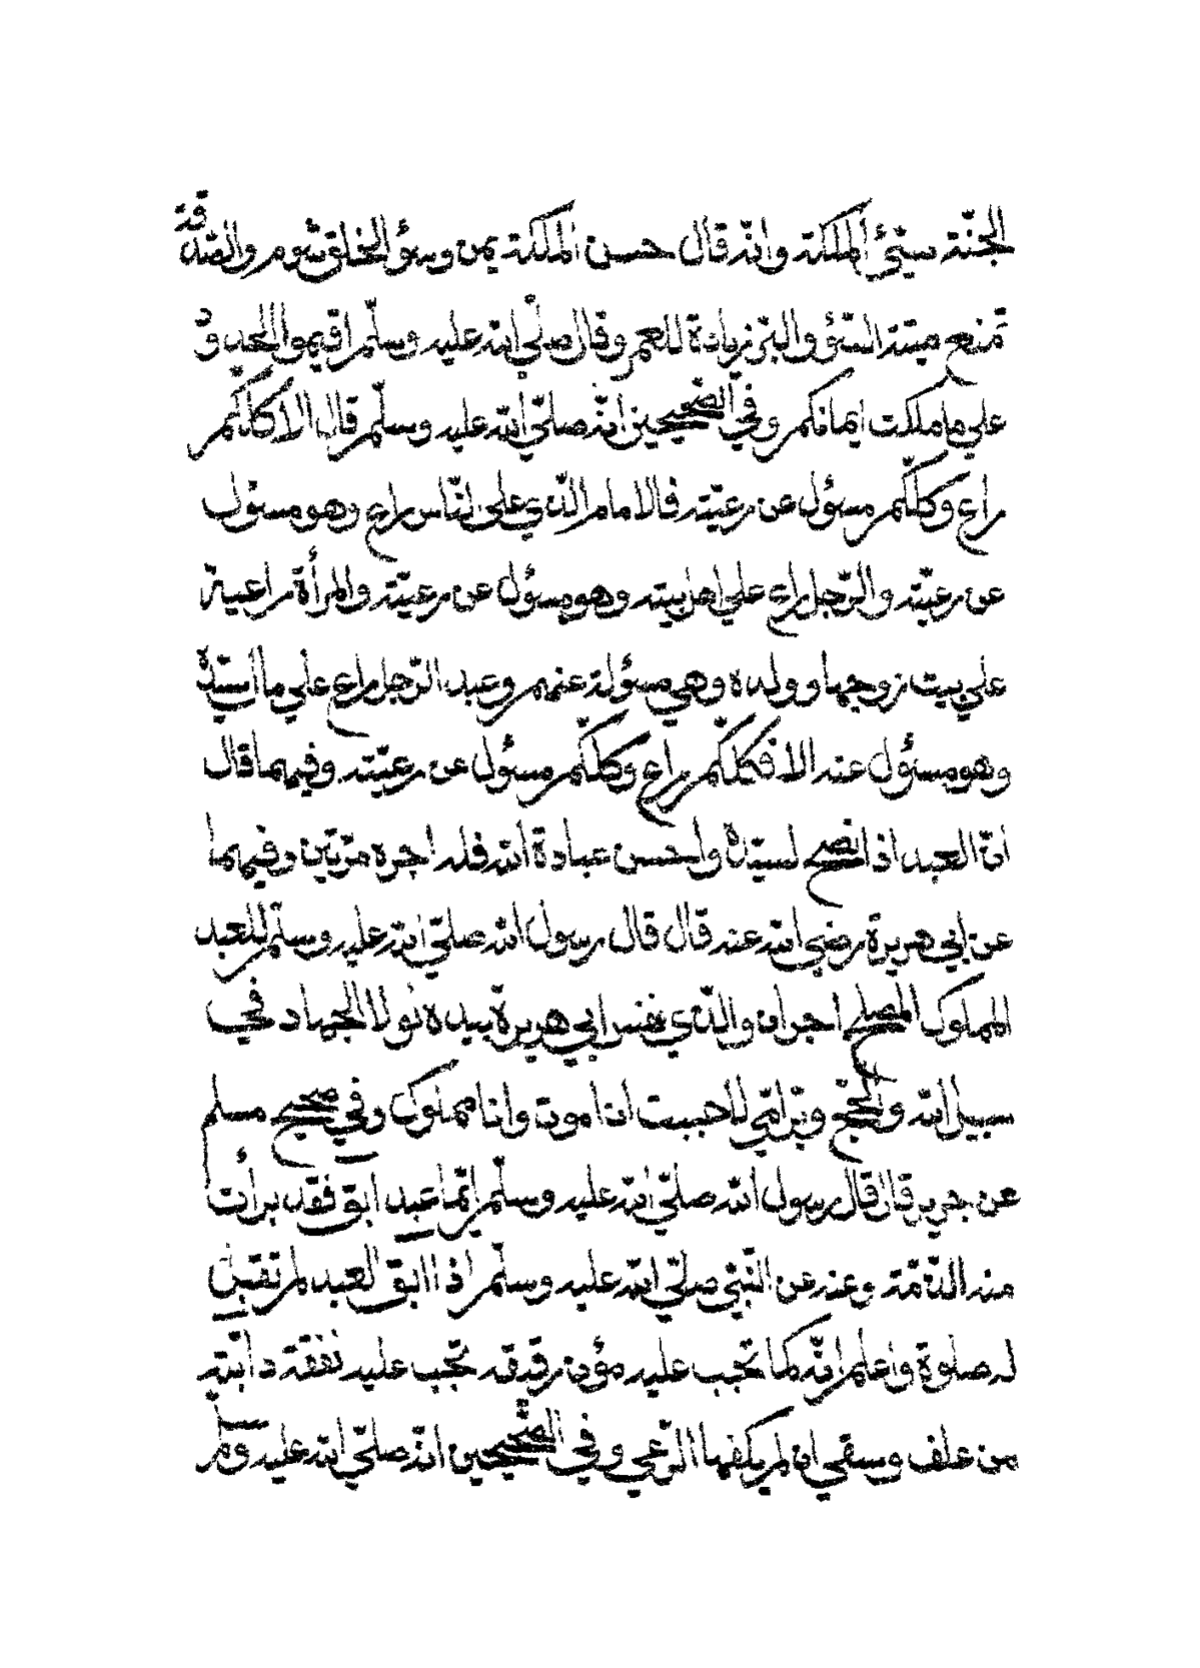 الجنّة سيّئ الملكة وانّه قال حسن الملكة يمن وسوٴ الخلق شوم والصّدقة
تمنع ميتة السّوٴ والبرّ زيادة للعمر وقال صلّي الله عليه وسلّم اقيموا الحدود
علي ما ملكت ايمانكم وفي الصّحيحين انّه صلّي الله عليه وسلّم قال الا كلّكم
راع وكلّكم مسئول عن رعيّته فالامام الّذي علي النّاس راع وهو مسئول
عن رعيّته والرّجل راع علي اهل بيته وهو مسئول عن رعيّته والمرأة راعية
علي بيت زوجها وولده وهي مسئولة عنهم وعبد الرّجل راع علي مال سيّده
وهو مسئول عنه الا فكلّكم راع وكلّكم مسئول عن رعيّته وفيهما قال
انّ العبد اذا نصح لسيّده واحسن عبادة الله فله اجره مرّتين وفيهما
عن ابي هريرة رضي الله عنه قال قال رسول الله صلّي الله عليه وسلّم للعبد
المملوك المصلح اجران والّذي نفس ابي هريرة بيده لولا الجهاد في
سبيل الله والحجّ وبرّ امّي لاحببت ان اموت وانا مملوك وفي صحيح مسلم
عن جرير قال قال رسول الله صلّي الله عليه وسلّم ايّما عبد ابق فقد برأت
منه الذّمّة وعنه عن النّبيّ صلّي الله عليه وسلّم اذا ابق العبد لم تقبل
له صلوة واعلم انّه كما تجب عليه مؤن رقيقه تجب عليه نفقة دابّته
من علف وسقي ان لم يكفها الرّعي وفي الصّحيحين انّه صلّي الله عليه وسلّم